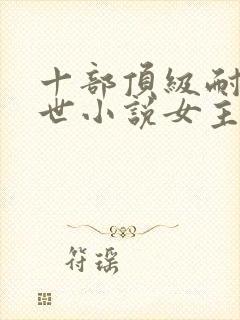 十部頂級耐
世小說女主
符瑶